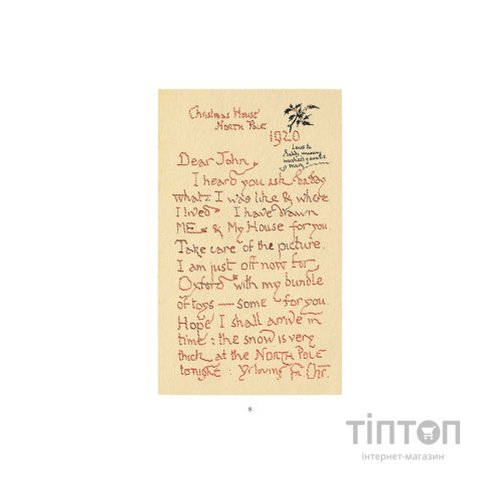 Christmas House
North Pole
1920
Love to
daddy mummy
michael & auntie
& mary
Dear John,
I heard you ask daddy
what I was like & where
I lived I have drawn
ME & My House for you.
Take care of the picture.
I am just off now for
Oxford with my bundle
of toys — some for you.
Hope I shall arrive in
time : the snow is very
thick at the NORTH POLE
tonight. Yr loving Fr. Chr.
8
ТІПТОП
інтернет-магазин